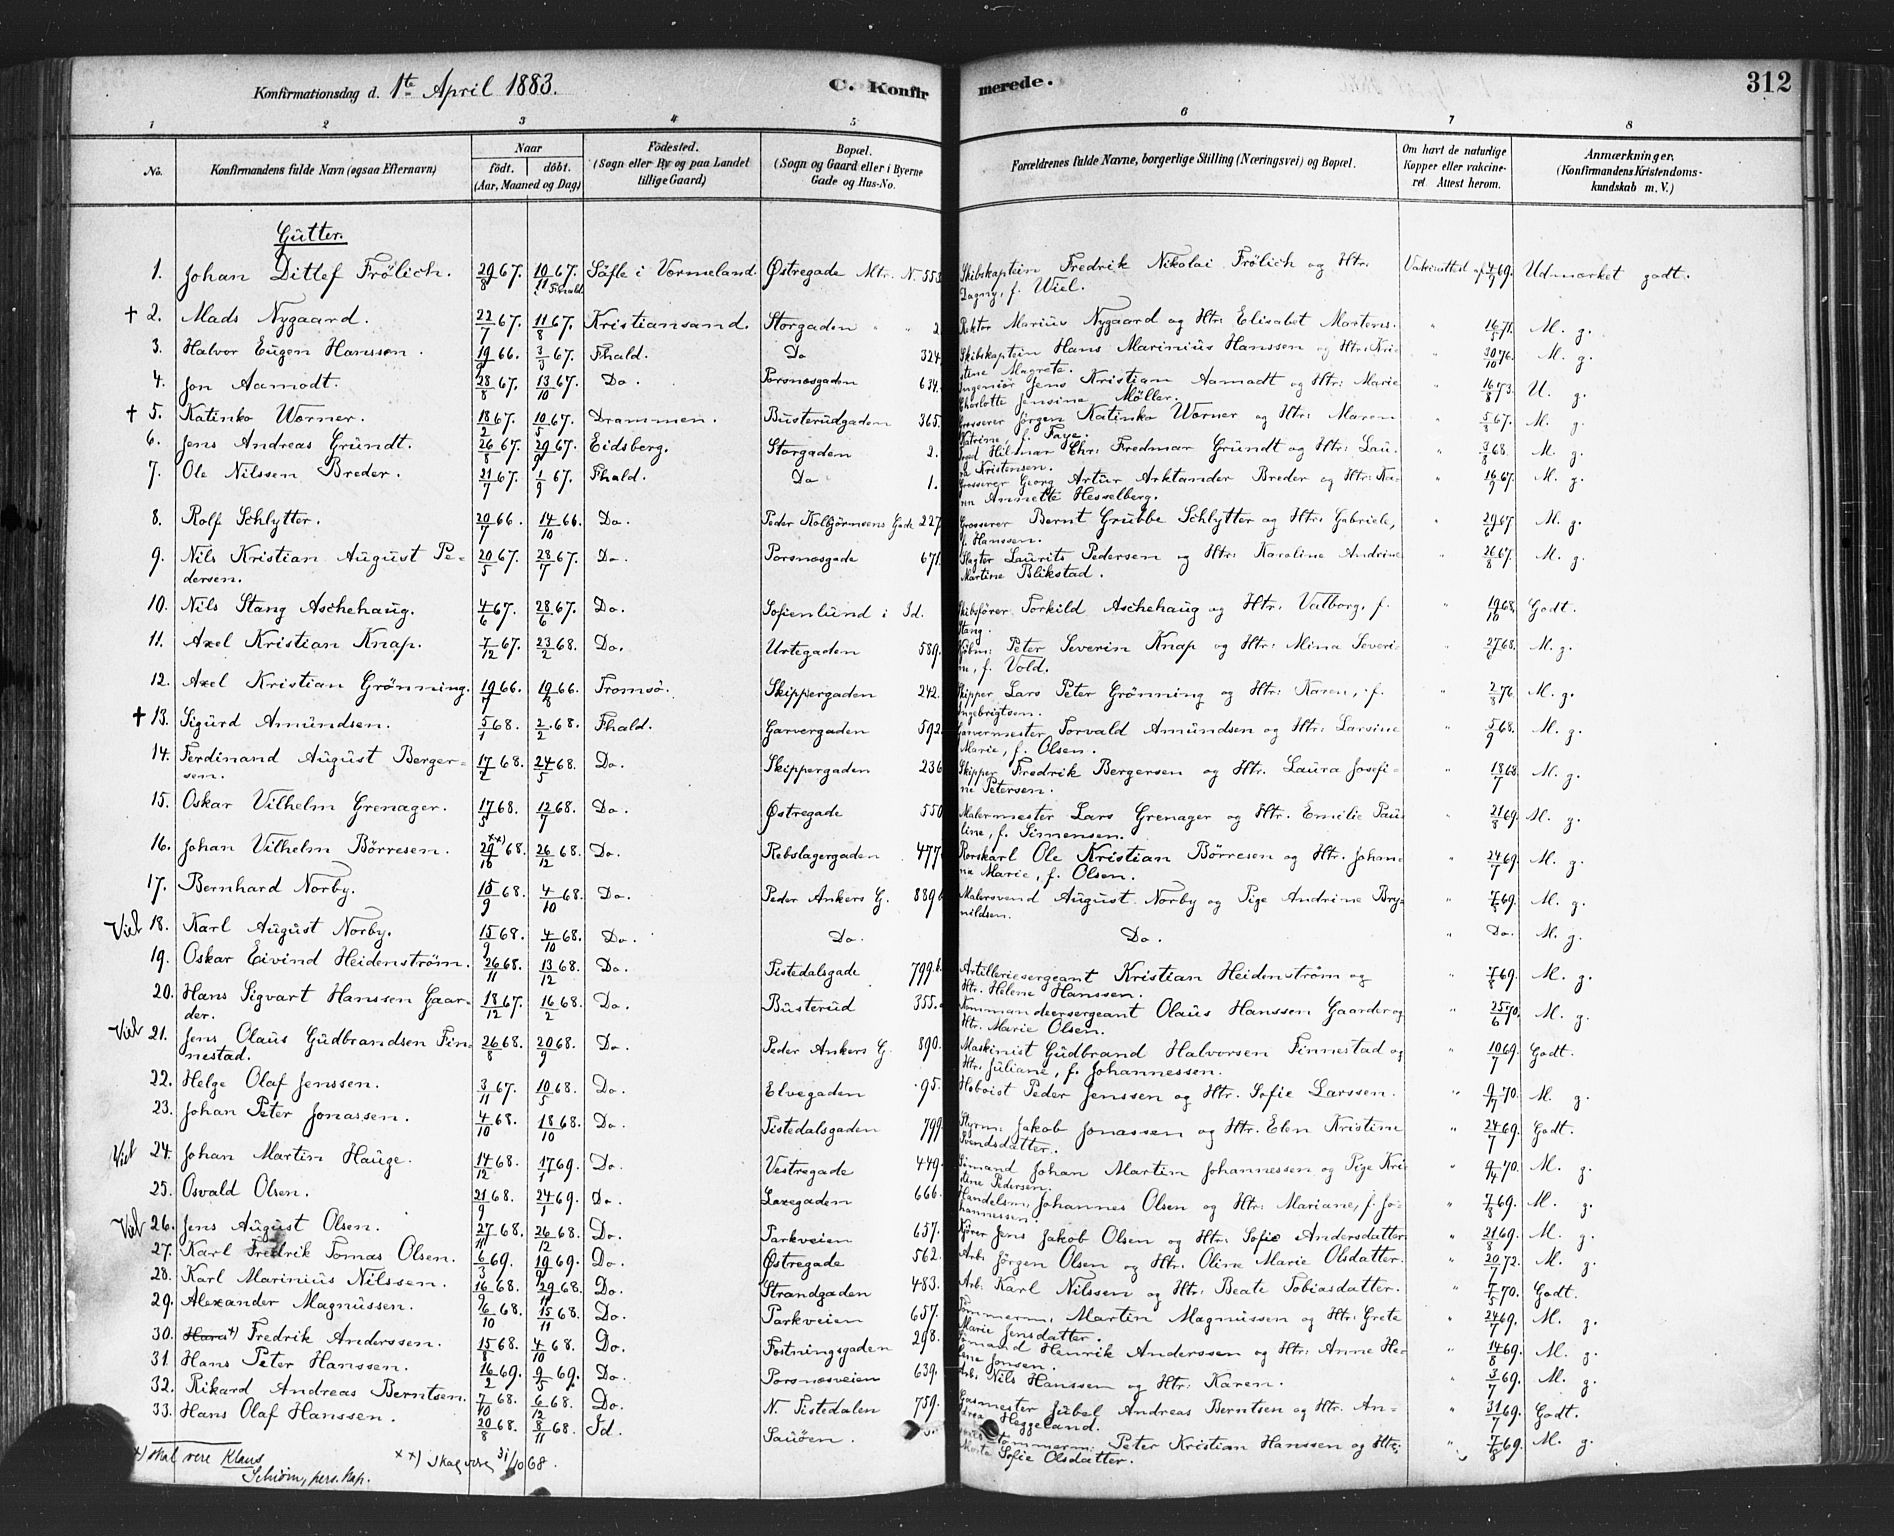 Konfirmationsdag d. 1te April 1883. C. Konfirmerede. 312
1 2 3 4 5 6 7 8
No. Konfirmandens fulde Navn (ogsaa Efternavn) Naar født. døbt. (Aar, Maaned og Dag) Fødested. (Sogn eller By og paa Landet tillige Gaard) Bopæl. (Sogn og Gaard eller i Byerne Gade og Hus-No. Forældrenes fulde Navne, borgerlige Stilling (Næringsvei) og Bopæl. Om havt de naturlige Kopper eller vakcineret. Attest herom. Anmærkninger. (Konfirmandens Kristendomskundskab m. V.)
Gutter.
1. Johan Ditlef Frölich. 29/8 67. 10/11 67. Fhald Säfle i Vermeland Østregade Mtr. N 553 Skibskaptein Fredrik Nikolai Frölich og Htr: Dagny, f. Wiel. Vakcinattest af 4/9 69. Udmærket godt.
† 2. Mads Nygaard. 22/7 67. 11/8 67. Kristiansand. Storgaden " " 2 Rektor Marius Nygaard og Htr: Elisabet Martens. " 16/5 71. M. g.
3. Halvor Eugen Hanssen. 19/9 66. 3/3 67. Fhald. Do 324 Skibskaptein Hans Marinius Hanssen og Htr: Kristine Magrete. " 30/10 76. M. g.
4. Jon Aamodt. 28/8 67. 13/10 67. Do. Porsnæsgaden 634. Ingeniør Jens Kristian Aamodt og Htr: Marie Charlotte Jensine Möller. " 16/8 73. U. g.
† 5. Katinko Worner. 18/2 67. 10/5 67. Drammen. Busterudgaden 365. Grosserer Jörgen Katinko Worner og Htr: Maren Katrine, f. Faye. " 5/8 67. M. g.
6. Jens Andreas Grundt. 26/8 67. 29/9 67. Eidsberg. Storgaden 2. Hilmar Chr: Fredmar Grundt og Htr: Laura Kristensen. " 3/8 68. M. g.
7. Ole Nilssen Breder. 21/7 67. 1/9 67. Fhald. Do 1. Grosserer Georg Artur Arktander Breder og Htr: Karen Annette Hesselberg. " 16/9 67. M. g.
8. Rolf Schlytter. 20/7 66. 14/10 66. Do. Peder Kolbjörnsens Gade 227 Grosserer Bernt Grubbe Schlytter og Htr: Gabriele, f. Hanssen. " 29/6 67 M. g.
9. Nils Kristian August Pedersen. 20/5 67. 28/7 67. Do. Porsnæsgade 671. Slagter Laurits Pedersen og Htr: Karoline Andrine Martine Blikstad. " 26/8 67. M. g.
10. Nils Stang Aschehaug. 4/6 67. 28/6 67. Do. Sofienlund i Id. Skibsfører Torkild Aschehaug og Htr: Valborg, f. Stang. " 19/10 68. Godt.
11. Axel Kristian Knap. 7/12 67. 23/2 68. Do. Urtegaden 589. Kjøbm: Peter Severin Knap og Htr: Mina Severine, f. Vold. " 27/6 68. M. g.
12. Axel Kristian Grönning. 19/7 66. 19/8 66. Tromsø. Skippergaden 242. Skipper Lars Peter Grönning og Htr: Karen, f. Ingebrigtsen. " 2/8 76. M. g.
† 13. Sigurd Amundsen. 5/1 68. 2/2 68. Fhald. Garvergaden 592. Garvermester Torvald Amundsen og Htr: Larsine Marie, f. Olsen. " 5/9 68. M. g.
14. Ferdinand August Bergersen. 17/2 68. 24/5 68. Do. Skippergaden 236 Skipper Fredrik Bergersen og Htr. Laura Josefine Petersen. " 18/7 68. M. g.
15. Oskar Vilhelm Grenager. 17/5 68. 12/7 68. Do. Østregade 550 Malermester Lars Grenager og Htr. Emilie Pauline, f. Simensen. " 21/8 69. M. g.
16. Johan Vilhelm Börresen. 29/10 xx) 68. 26/12 68. Do. Rebslagergaden 477 Rorskarl Ole Kristian Börresen og Htr. Johanna Marie, f. Olsen. " 24/7 69. M. g.
17. Bernhard Norby. 15/9 68. 4/10 68. Do. Peder Ankers G. 889 b Malersvend August Norby og Pige Andrine Brynildsen. " 7/8 69. M. g.
Viet 18. Karl August Norby. 15/9 68. 4/10 68. Do. Do. Do. " Do. M. g.
19. Oskar Eivind Heidenström. 26/11 68. 13/12 68. Do. Tistedalsgade 799.b. Artilleriesergeant Kristian Heidenström og Htr. Helene Hanssen. " 7/8 69. M. g.
20. Hans Sigvart Hanssen Gaarder. 18/12 67. 16/2 68. Do. Busterud 355. Kommandeersergeant Olaus Hanssen Gaarder og Htr. Marie Olsen. " 25/6 70. M. g.
Viet 21. Jens Olaus Gudbrandsen Finnestad. 26/8 68. 20/9 68. Do. Peder Ankers G. 890. Maskinist Gudbrand Halvorsen Finnestad og Htr. Juliane, f. Johannessen. " 10/7 69. Godt.
22. Helge Olaf Jenssen. 3/11 67. 10/5 68. Do. Elvegaden 95. Hoboist Peder Jenssen og Htr. Sofie Larssen. " 9/7 70. M. g.
23. Johan Peter Jonassen. 4/10 68. 18/10 68. Do. Tistedalsgaden 799 Styrm: Jakob Jonassen og Htr. Elen Kristine Svendsdatter. " 24/7 69. Godt.
Viet 24. Johan Martin Hauge. 14/12 68. 17/1 69. Do. Vestregade 449. Sömand Johan Martin Johannessen og Pige Kristine Pedersen. " 9/4 70. M. g.
25. Osvald Olsen. 21/9 68. 24/1 69. Do. Laxegaden 666. Handelsm: Johannes Olsen og Htr: Mariane, f. Johannessen. " 7/8 69. M. g.
Viet 26. Jens August Olsen. 27/11 68. 26/12 68. Do. Parkveien 657. Kjører Jens Jakob Olsen og Htr: Sofie Andersdatter. " 21/8 69. M. g.
27. Karl Fredrik Tomas Olsen. 6/3 69. 19/9 69. Do. Østregade 562. Arb: Jörgen Olsen og Htr. Oline Marie Olsdatter. " 20/7 72. M. g.
28. Karl Marinius Nilssen. 16/9 68. 29/11 68. Do. Strandgaden 483. Arb: Karl Nilssen og Htr: Beate Tobiasdatter. " 7/5 70. Godt.
29. Alexander Magnussen. 6/10 68. 15/11 68. Do. Parkveien 657. Tømmerm: Martin Magnussen og Htr: Grete Marie Jensdatter. " 24/7 69. M. g.
30. Hans x) Fredrik Anderssen. 15/8 68. 4/10 68. Do. Fostningsgaden 298. Sömand Henrik Anderssen og Htr: Anne Helene Jonsen. " 14/8 69. M. g.
31. Hans Peter Hanssen. 16/2 69. 9/5 69. Do. Porsnæsveien 639. Arb. Nils Hanssen og Htr: Karen. " 3/7 69. M. g.
32. Rikard Andreas Berntsen. 7/10 68. 6/12 68. Do. N. Tistedalen 759. Gasmester Jubel Andreas Berntsen og Htr. Andrea Heggeland. " 31/7 69. Godt.
33. Hans Olaf Hanssen. 20/8 68. 8/11 68. Id. Sauøen. Tömmerm: Peter Kristian Hanssen og Htr: Marta Sofie Olsdatter. " 7/8 69. M. g.
x) skal være Klaus
Schiøm, pers. kap.
xx) skal være 31/10 68.